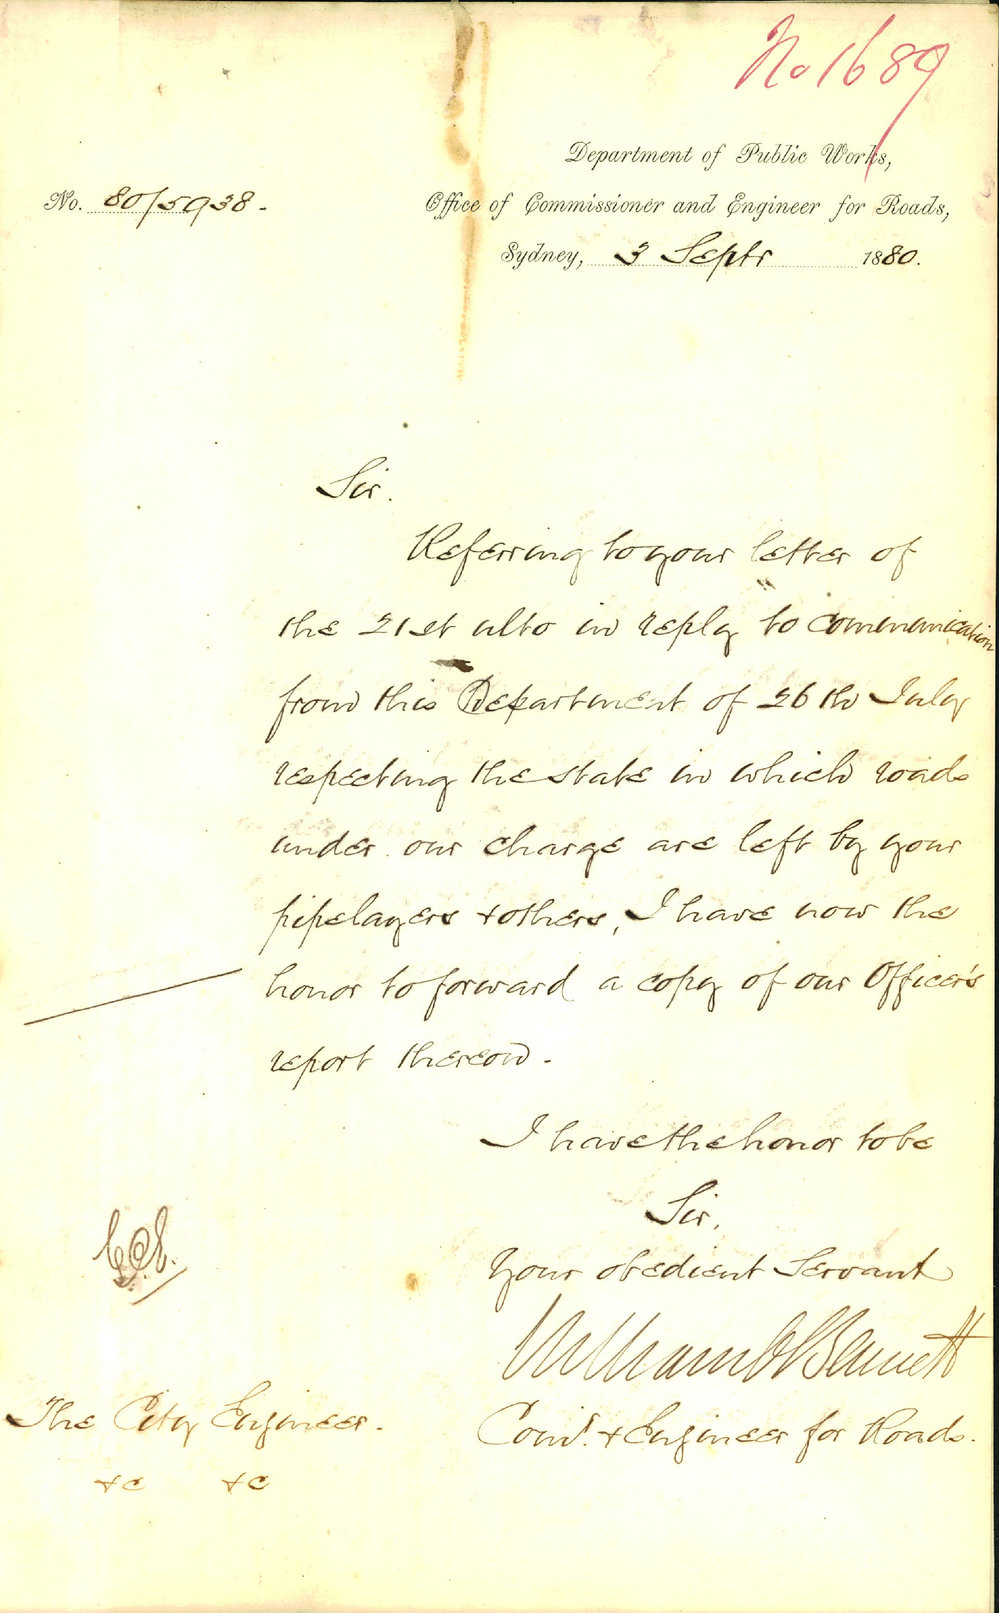 No 1689
Department of Public Works,
No. 80/5938.
Office of Commissioner and Engineer for Roads,
Sydney, 3 Septr 1880.
Sir.
Referring to your letter of
the 21st ulto in reply to communication
from this Department of 26th July
respecting the state in which roads
under our charge are left by your
pipelayers & others, I have now the
honor to forward a copy of our Officer's
report thereon.
I have the honor to be
Sir,
Your obedient Servant
William C Bennett
Comr. & Engineer for Roads.
The City Engineer.
&c &c